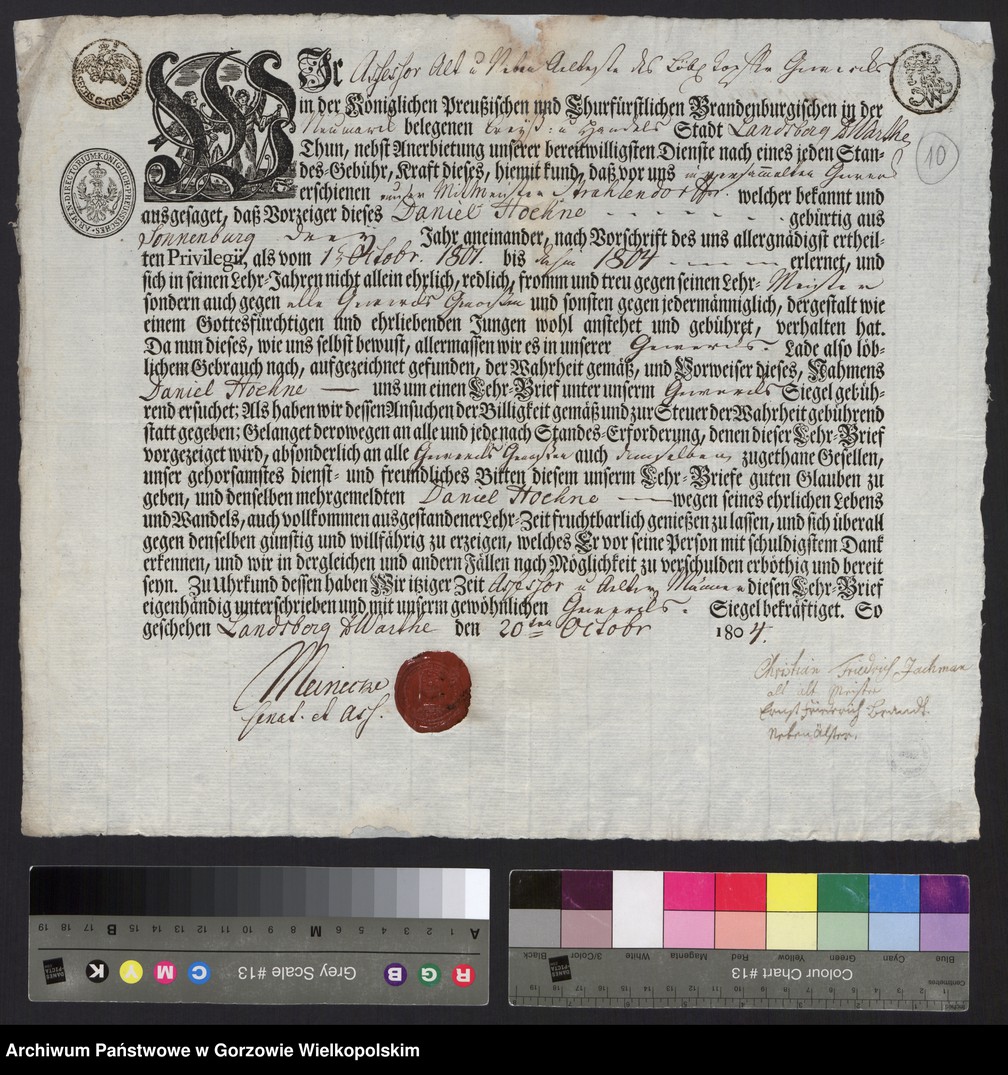 Wir Assessor Alt u Neben Aelteste des Löbl Gewercks
in der Königlichen Preußischen und Churfürstlichen Brandenburgischen in der
Neumarck belegenen Creyß- u Handels Stadt Landsberg a/Warthe
Thun, nebst Anerbietung unserer bereitwilligsten Dienste nach eines jeden Stan-
des-Gebühr, Kraft dieses, hiemit kund, daß vor uns in versammelten Gewerck
erschienen welcher bekannt und
ausgesaget, daß Vorzeiger dieses Daniel Hoehne - - - - - - gebürtig aus
Sonnenburg drey Jahr aneinander, nach Vorschrift des uns allergnädigst ertheil-
ten Privilegii, als vom 15 Octobr. 1801. bis dahin 1804 - - - - erlernet, und
sich in seinen Lehr-Jahren nicht allein ehrlich, redlich, fromm und treu gegen seinen Lehr-Meister
sondern auch gegen alle Gewercks Genossen und sonsten gegen jedermänniglich, dergestalt wie
einem Gottesfürchtigen und ehrliebenden Jungen wohl anstehet und gebühret, verhalten hat.
Da nun dieses, wie uns selbst bewust, allermassen wir es in unserer Gewercks- Lade also löb-
lichem Gebrauch nach, aufgezeichnet gefunden, der Wahrheit gemäß, und Vorweiser dieses, Nahmens
Daniel Hoehne — uns um einen Lehr-Brief unter unserm Gewercks Siegel gebüh-
rend ersuchet; Als haben wir dessen Ansuchen der Billigkeit gemäß und zur Steuer der Wahrheit gebührend
statt gegeben; Gelanget derowegen an alle und jede nach Standes-Erforderung, denen dieser Lehr-Brief
vorgezeiget wird, absonderlich an alle Gewercks Genossen auch demselben zugethane Gesellen,
unser gehorsamstes dienst- und freundliches Bitten diesem unserm Lehr-Briefe guten Glauben zu
geben, und denselben mehrgemeldten Daniel Hoehne — wegen seines ehrlichen Lebens
und Wandels, auch vollkommen ausgestandener Lehr-Zeit fruchtbarlich genießen zu lassen, und sich überall
gegen denselben günstig und willfährig zu erzeigen, welches Er vor seine Person mit schuldigstem Dank
erkennen, und wir in dergleichen und andern Fällen nach Möglichkeit zu verschulden erböthig und bereit
seyn. Zu Uhrkund dessen haben Wir itziger Zeit Assessor u Alter Männer diesen Lehr-Brief
eigenhändig unterschrieben und mit unserm gewöhnlichen Gewercks- Siegel bekräftiget. So
geschehen Landsberg a/Warthe den 20ten Octobr 1804.
Meinecke
Senat. et Ass.
Christian Friedrich Jachman
alt alt Meister
Ernst Friedrich Brandt
Neben Älster.
10
Grey Scale #13
A 1 2 3 4 5 6 M 8 9 10 11 12 13 14 15 B 17 18 19
R G B C M Y K
Colour Chart #13
Blue Cyan Green Yellow Red Magenta White 3/Color Black
Centimetres
Archiwum Państwowe w Gorzowie Wielkopolskim